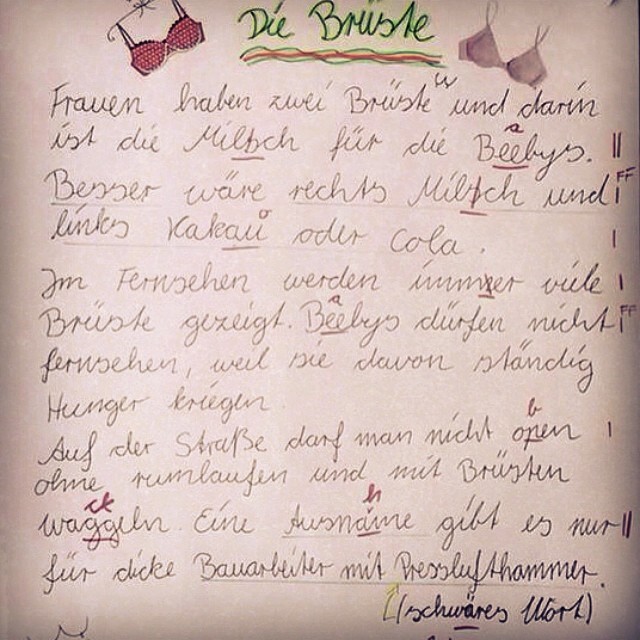 Die Brüste
Frauen haben zwei Brüste und darin
ist die Miltsch für die Beebys.
Besser wäre rechts Miltsch und
links Kakau oder Cola.
Im Fernsehen werden immer viele
Brüste gezeigt. Beebys dürfen nicht
fernsehen, weil sie davon ständig
Hunger kriegen.
Auf der Straße darf man nicht open
ohne rumlaufen und mit Brüsten
waggeln. Eine Ausnáme gibt es nur
für dicke Bauarbeiter mit Presslufthammer.
(schwäres Wort)